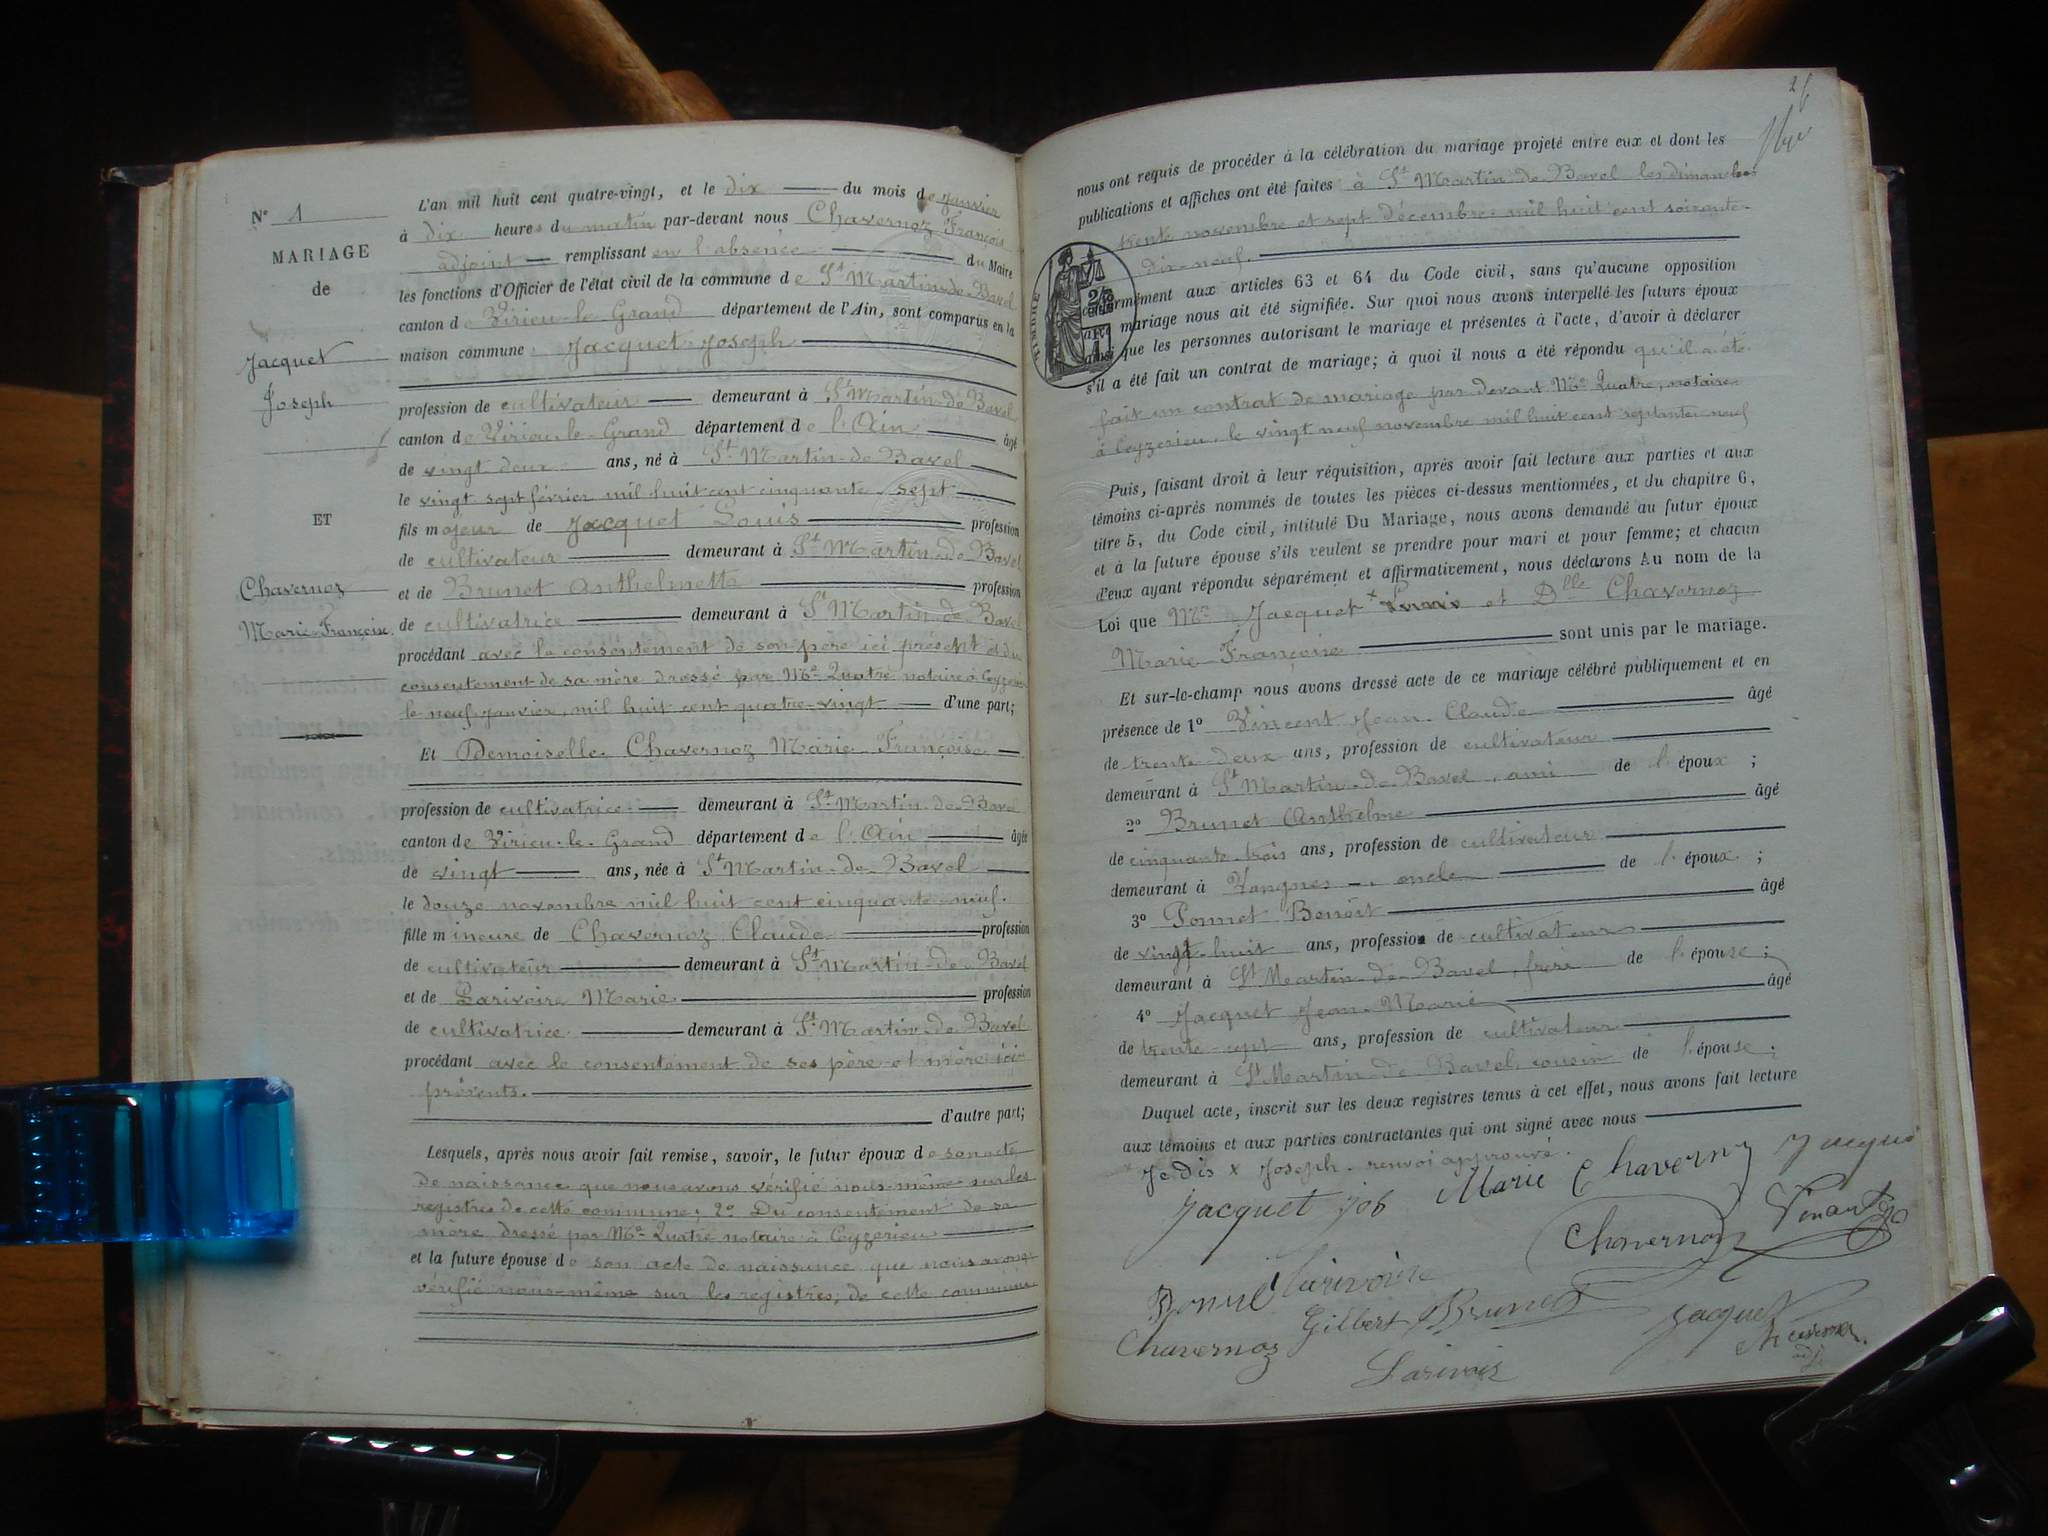 N° 1
MARIAGE
de
Jacquet
Joseph
ET
Chavernoz
Marie-Françoise
L'an mil huit cent quatre-vingt, et le dix du mois de janvier
à dix heures du matin par-devant nous Chavernoz François
adjoint remplissant en l'absence du Maire
les fonctions d'Officier de l'état civil de la commune de St Martin-de-Bavel
canton de Virieu-le-Grand département de l'Ain, sont comparus en la
maison commune Jacquet Joseph
profession de cultivateur demeurant à St Martin-de-Bavel
canton de Virieu-le-Grand département de l'Ain âgé
de vingt deux ans, né à St Martin-de-Bavel
le vingt sept février mil huit cent cinquante-sept
fils majeur de Jacquet Louis profession
de cultivateur demeurant à St Martin-de-Bavel
et de Brunet Anthelmette profession
de cultivatrice demeurant à St Martin-de-Bavel
procédant avec le consentement de son père ici présent et du
consentement de sa mère dressé par Me Quatre notaire à Ceyzérieu
le neuf janvier mil huit cent quatre-vingt d'une part;
Et Demoiselle Chavernoz Marie Françoise
profession de cultivatrice demeurant à St Martin-de-Bavel
canton de Virieu-le-Grand département de l'Ain âgée
de vingt ans, née à St Martin-de-Bavel
le douze novembre mil huit cent cinquante-neuf.
fille mineure de Chavernoz Claude profession
de cultivateur demeurant à St Martin-de-Bavel
et de Larivoire Marie profession
de cultivatrice demeurant à St Martin-de-Bavel
procédant avec le consentement de ses père et mère ici
présents.
d'autre part;
Lesquels, après nous avoir fait remise, savoir, le futur époux de son acte
de naissance que nous avons vérifié nous-même sur les
registres de cette commune; 2° Du consentement de sa
mère dressé par Me Quatre notaire à Ceyzérieu
et la future épouse de son acte de naissance que nous avons
vérifié nous-même sur les registres de cette commune
nous ont requis de procéder à la célébration du mariage projeté entre eux et dont les
publications et affiches ont été faites à St Martin-de-Bavel les dimanches
trente novembre et sept décembre mil huit cent soixante-
dix-neuf.
TIMBRE
conformément aux articles 63 et 64 du Code civil, sans qu'aucune opposition
mariage nous ait été signifiée. Sur quoi nous avons interpellé les futurs époux
ainsi que les personnes autorisant le mariage et présentes à l'acte, d'avoir à déclarer
s'il a été fait un contrat de mariage; à quoi il nous a été répondu qu'il a été
fait un contrat de mariage par devant Me Quatre, notaire
à Ceyzerieu, le vingt neuf novembre mil huit cent septante-neuf
Puis, faisant droit à leur réquisition, après avoir fait lecture aux parties et aux
témoins ci-après nommés de toutes les pièces ci-dessus mentionnées, et du chapitre 6,
titre 5, du Code civil, intitulé Du Mariage, nous avons demandé au futur époux
et à la future épouse s'ils veulent se prendre pour mari et pour femme; et chacun
d'eux ayant répondu séparément et affirmativement, nous déclarons Au nom de la
Loi que Mr Jacquet x Louis et Dlle Chavernoz
Marie-Françoise sont unis par le mariage.
Et sur-le-champ nous avons dressé acte de ce mariage célébré publiquement et en
présence de 1° Vincent Jean-Claude âgé
de trente deux ans, profession de cultivateur
demeurant à St Martin-de-Bavel, ami de l'époux ;
2° Brunet Anthelme âgé
de cinquante-trois ans, profession de cultivateur
demeurant à Vongnes, oncle de l'époux ;
3° Ponnet Benoit âgé
de vingt-huit ans, profession de cultivateur
demeurant à St Martin-de-Bavel, frère de l'épouse ;
4° Jacquet Jean-Marie âgé
de trente-sept ans, profession de cultivateur
demeurant à St Martin-de-Bavel, cousin de l'épouse ;
Duquel acte, inscrit sur les deux registres tenus à cet effet, nous avons fait lecture
aux témoins et aux parties contractantes qui ont signé avec nous
Je dis x Joseph. renvoi approuvé.
Jacquet Job Marie Chavernoz Jacquet
Chavernoz
Larivoire
Gilbert Brunet Jacquet
Chavernoz
adj.